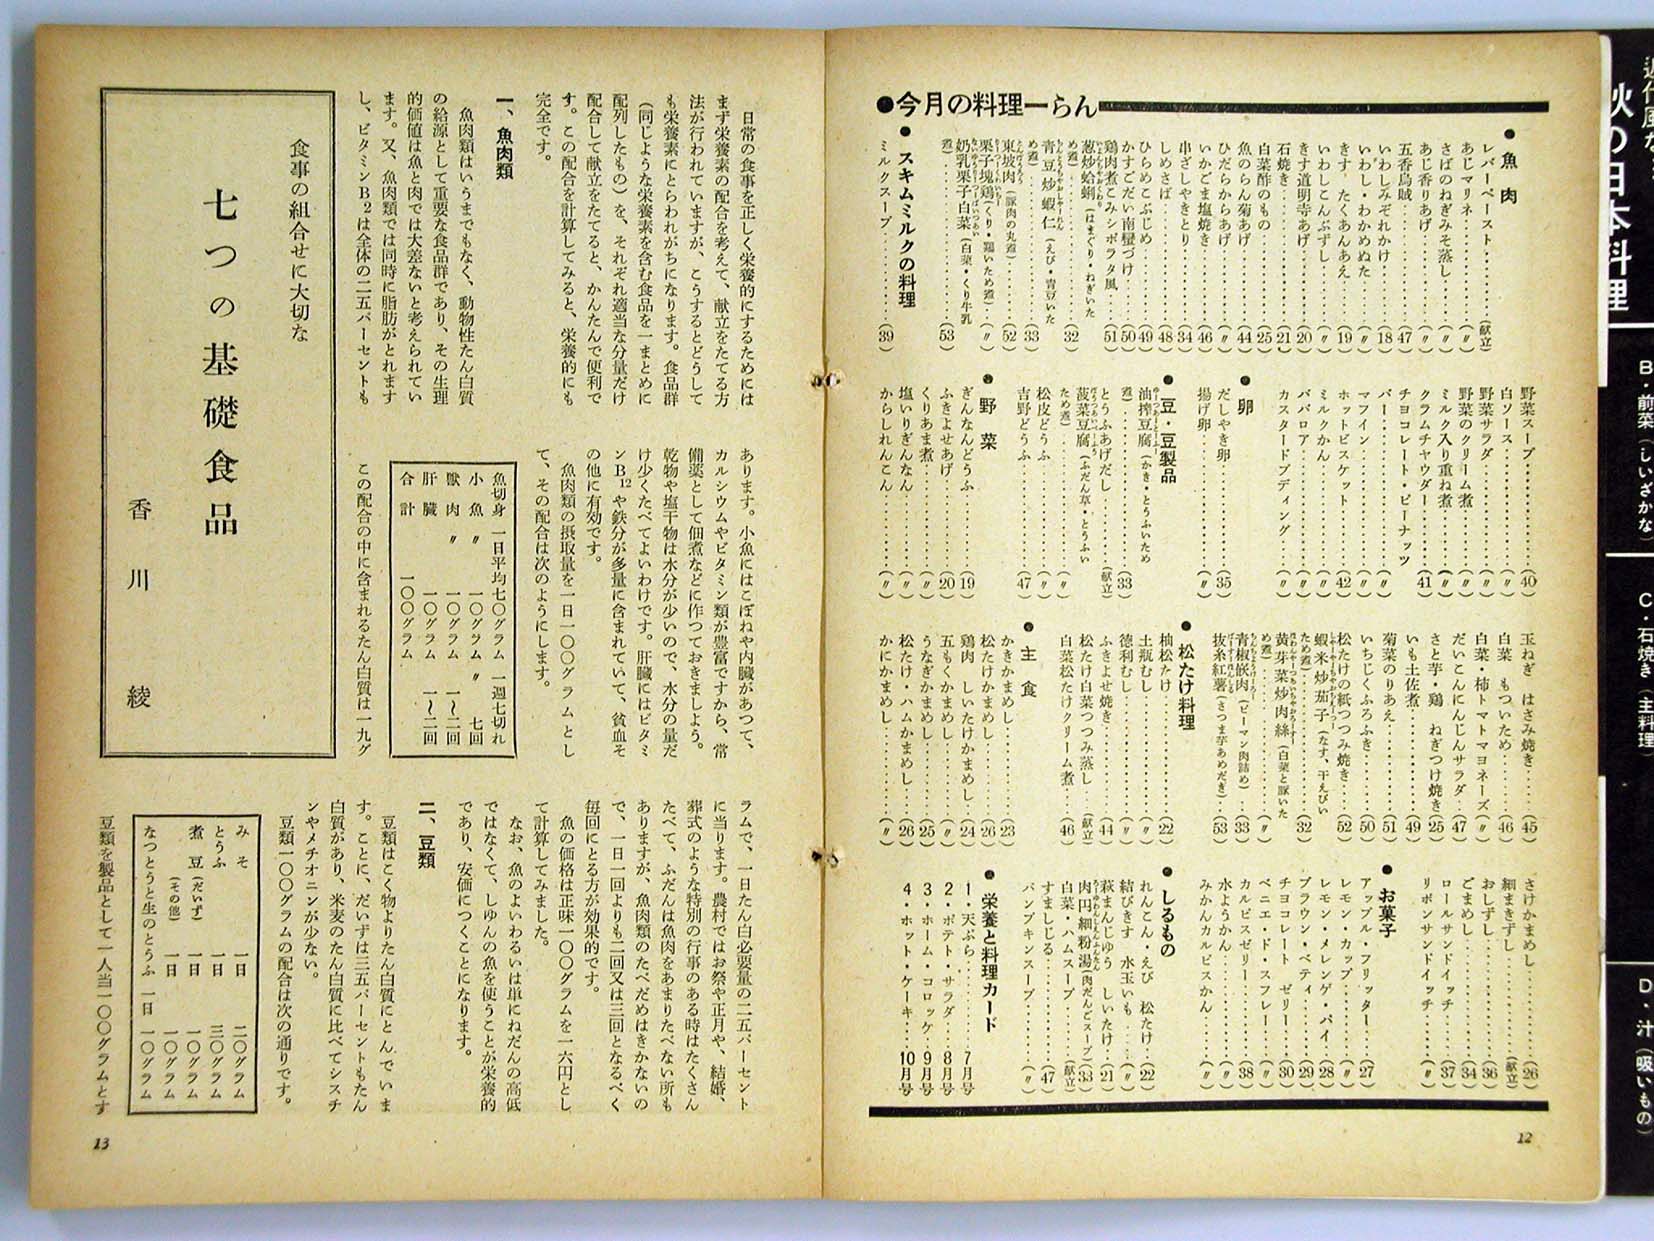 近代風な
秋の日本料理
B・前菜(しいざかな)
C・石焼き(主料理)
D・汁(吸いもの)
●今月の料理一らん
●魚肉
レバーペースト………(献立)
あじマリネ………(〃)
さばのねぎみそ蒸し………(〃)
あじ香りあげ………(〃)
五香烏賊………(47)
いわしみぞれかけ………(18)
いわし・わかめぬた………(〃)
きす たくあんあえ………(19)
いわしこんぶずし………(〃)
きす道明寺あげ………(20)
石焼き………(21)
白菜酢のもの………(25)
魚のらん菊あげ………(44)
ひだらからあげ………(〃)
いかごま塩焼き………(46)
串ざしやきとり………(34)
しめさば………(48)
ひらめこぶじめ………(49)
かすごだい南蠻づけ………(50)
鶏肉煮こみシボラタ風………(51)
葱炒蛤蜊(はまぐり・ねぎいため煮)………(32)
青豆炒蝦仁(えび・青豆いため煮)………(33)
東坡肉(豚肉の丸煮)………(52)
栗子塊鶏(くり・鶏いため煮)………(〃)
奶乳栗子白菜(白菜・くり牛乳煮)………(53)
●スキムミルクの料理
ミルクスープ………(39)
野菜スープ………(40)
白ソース………(〃)
野菜サラダ………(〃)
野菜のクリーム煮………(〃)
ミルク入り重ね煮………(〃)
クラムチャウダー………(41)
チヨコレート・ピーナッツ
バー………(〃)
マフイン………(〃)
ホットビスケット………(42)
ミルクかん………(〃)
ババロア………(〃)
カスタードプディング………(〃)
●卵
だしやき卵………(35)
揚げ卵………(〃)
●豆・豆製品
油搾豆腐(かき・とうふいため煮)………(33)
とうふあげだし………(献立)
菠菜豆腐(ふだん草・とうふいため煮)………(〃)
松皮どうふ………(〃)
吉野どうふ………(47)
●野菜
ぎんなんどうふ………(19)
ふきよせあげ………(20)
くりあま煮………(〃)
塩いりぎんなん………(〃)
からしれんこん………(〃)
玉ねぎ はさみ焼き………(45)
白菜 もついため………(46)
白菜・柿トマトマヨネーズ(〃)
だいこんにんじんサラダ………(47)
さと芋・鶏 ねぎつけ焼き(25)
いも土佐煮………(49)
菊菜のりあえ………(51)
いちじくふろふき………(50)
松たけの紙つつみ焼き………(52)
蝦米炒茄子(なす、干えびいため煮)………(32)
黄芽菜炒肉絲(白菜と豚いため煮)………(〃)
青椒嵌肉(ピーマン肉詰め)………(33)
抜糸紅薯(さつま芋あめだき)………(53)
●松たけ料理
柚松たけ………(22)
土瓶むし………(〃)
徳利むし………(〃)
ふきよせ焼き………(44)
松たけ白菜つつみ蒸し………(献立)
白菜松たけクリーム煮………(46)
●主食
かきかまめし………(23)
松たけかまめし………(26)
鶏肉 しいたけかまめし………(24)
五もくかまめし………(〃)
うなぎかまめし………(25)
松たけ・ハムかまめし………(26)
かにかまめし………(〃)
さけかまめし………(26)
細まきずし………(献立)
おしずし………(36)
ごまめし………(34)
ロールサンドイッチ………(37)
リボンサンドイッチ………(〃)
●お菓子
アップル・フリッター………(27)
レモン・カップ………(〃)
レモン・メレンゲ・パイ………(28)
ブラウン・ベティ………(29)
チヨコレート ゼリー………(30)
ベニエ・ド・スフレー………(〃)
カルピスゼリー………(38)
水ようかん………(〃)
みかんカルピスかん………(〃)
●しるもの
れんこん・えび 松たけ………(22)
結びきす 水玉いも………(〃)
萩まんじゆう しいたけ………(21)
肉円細粉湯(肉だんごスープ)(33)
白菜・ハムスープ………(献立)
すましじる………(47)
パンプキンスープ………(〃)
●栄養と料理カード
1・天ぷら………7月号
2・ポテト・サラダ………8月号
3・ホーム・コロッケ………9月号
4・ホット・ケーキ………10月号
12
食事の組合せに大切な
七つの基礎食品
香川 綾
日常の食事を正しく栄養的にするためには
まず栄養素の配合を考えて、献立をたてる方
法が行われていますが、こうするとどうして
も栄養素にとらわれがちになります。食品群
(同じような栄養素を含む食品を一まとめに
配列したもの)を、それぞれ適当な分量だけ
配合して献立をたてると、かんたんで便利で
す。この配合を計算してみると、栄養的にも
完全です。
一、魚肉類
魚肉類はいうまでもなく、動物性たん白質
の給源として重要な食品群であり、その生理
的価値は魚と肉では大差ないと考えられてい
ます。又、魚肉類では同時に脂肪がとれます
し、ビタミンB2は全体の二五パーセントも
あります。小魚にはこぼねや内臓があつて、
カルシウムやビタミン類が豊富ですから、常
備薬として佃煮などに作つておきましよう。
乾物や塩干物は水分が少いので、水分の量だ
け少くたべてよいわけです。肝臓にはビタミ
ンB12や鉄分が多量に含まれていて、貧血そ
の他に有効です。
魚肉類の摂取量を一日一〇〇グラムとし
て、その配合は次のようにします。
魚切身 一日平均七〇グラム 一週七切れ
小魚 〃 一〇グラム 〃 七回
獣肉 〃 一〇グラム 一〜二回
肝臓 一〇グラム 一〜二回
合計 一〇〇グラム
この配合の中に含まれるたん白質は一九グ
ラムで、一日たん白必要量の二五パーセント
に当ります。農村ではお祭や正月や、結婚、
葬式のような特別の行事のある時はたくさん
たべて、ふだんは魚肉をあまりたべない所も
ありますが、魚肉類のたべだめはきかないの
で、一日一回よりも二回又は三回となるべく
毎回にとる方が効果的です。
魚の価格は正味一〇〇グラムを一六円とし
て計算してみました。
なお、魚のよいわるいは単にねだんの高低
ではなくて、しゆんの魚を使うことが栄養的
であり、安価につくことになります。
二、豆類
豆類はこく物よりたん白質にとんでいま
す。ことに、だいずは三五パーセントもたん
白質があり、米麦のたん白質に比べてシスチ
ンやメチオニンが少ない。
豆類一〇〇グラムの配合は次の通りです。
みそ 一日 二〇グラム
とうふ 一日 三〇グラム
煮豆(だいず) 一日 一〇グラム
(その他) 一日 一〇グラム
なつとうと生のとうふ 一日 一〇グラム
豆類を製品として一人当一〇〇グラムとす
13